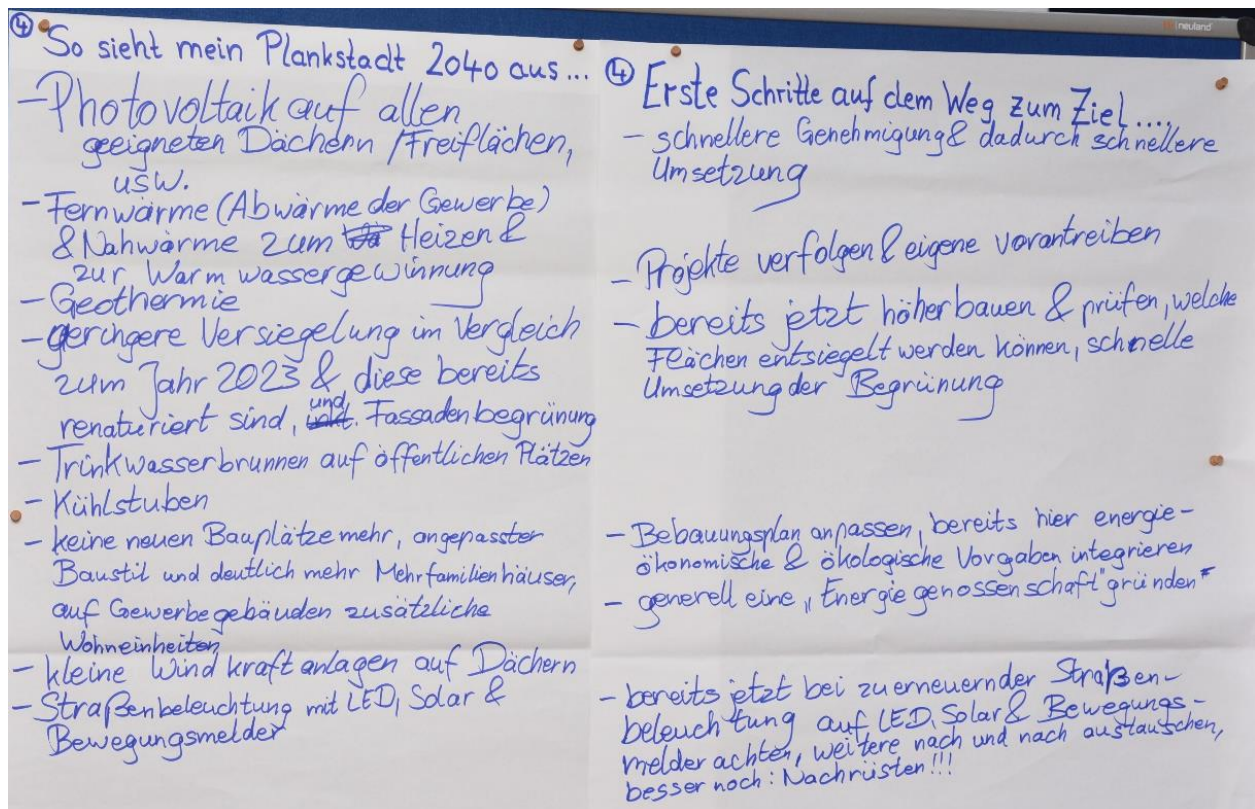 ④ So sieht mein Plankstadt 2040 aus...
- Photovoltaik auf allen
geeigneten Dächern / Freiflächen,
usw.
- Fernwärme (Abwärme der Gewerbe)
& Nahwärme zum Heizen &
zur Warmwassergewinnung
- Geothermie
- geringere Versiegelung im Vergleich
zum Jahr 2023 & diese bereits
renaturiert sind, und Fassadenbegrünung
- Trinkwasserbrunnen auf öffentlichen Plätzen
- Kühlstuben
- keine neuen Bauplätze mehr, angepasster
Baustil und deutlich mehr Mehrfamilienhäuser,
auf Gewerbegebäuden zusätzliche
Wohneinheiten
- kleine Windkraftanlagen auf Dächern
- Straßenbeleuchtung mit LED, Solar &
Bewegungsmelder
neuland
④ Erste Schritte auf dem Weg zum Ziel....
- schnellere Genehmigung & dadurch schnellere
Umsetzung
- Projekte verfolgen & eigene vorantreiben
- bereits jetzt höher bauen & prüfen, welche
Flächen entsiegelt werden können, schnelle
Umsetzung der Begrünung
- Bebauungsplan anpassen, bereits hier energie-
ökonomische & ökologische Vorgaben integrieren
- generell eine „Energiegenossenschaft" gründen"
- bereits jetzt bei zu erneuernder Straßen-
beleuchtung auf LED, Solar & Bewegungs-
melder achten, weitere nach und nach austauschen,
besser noch: Nachrüsten!!!